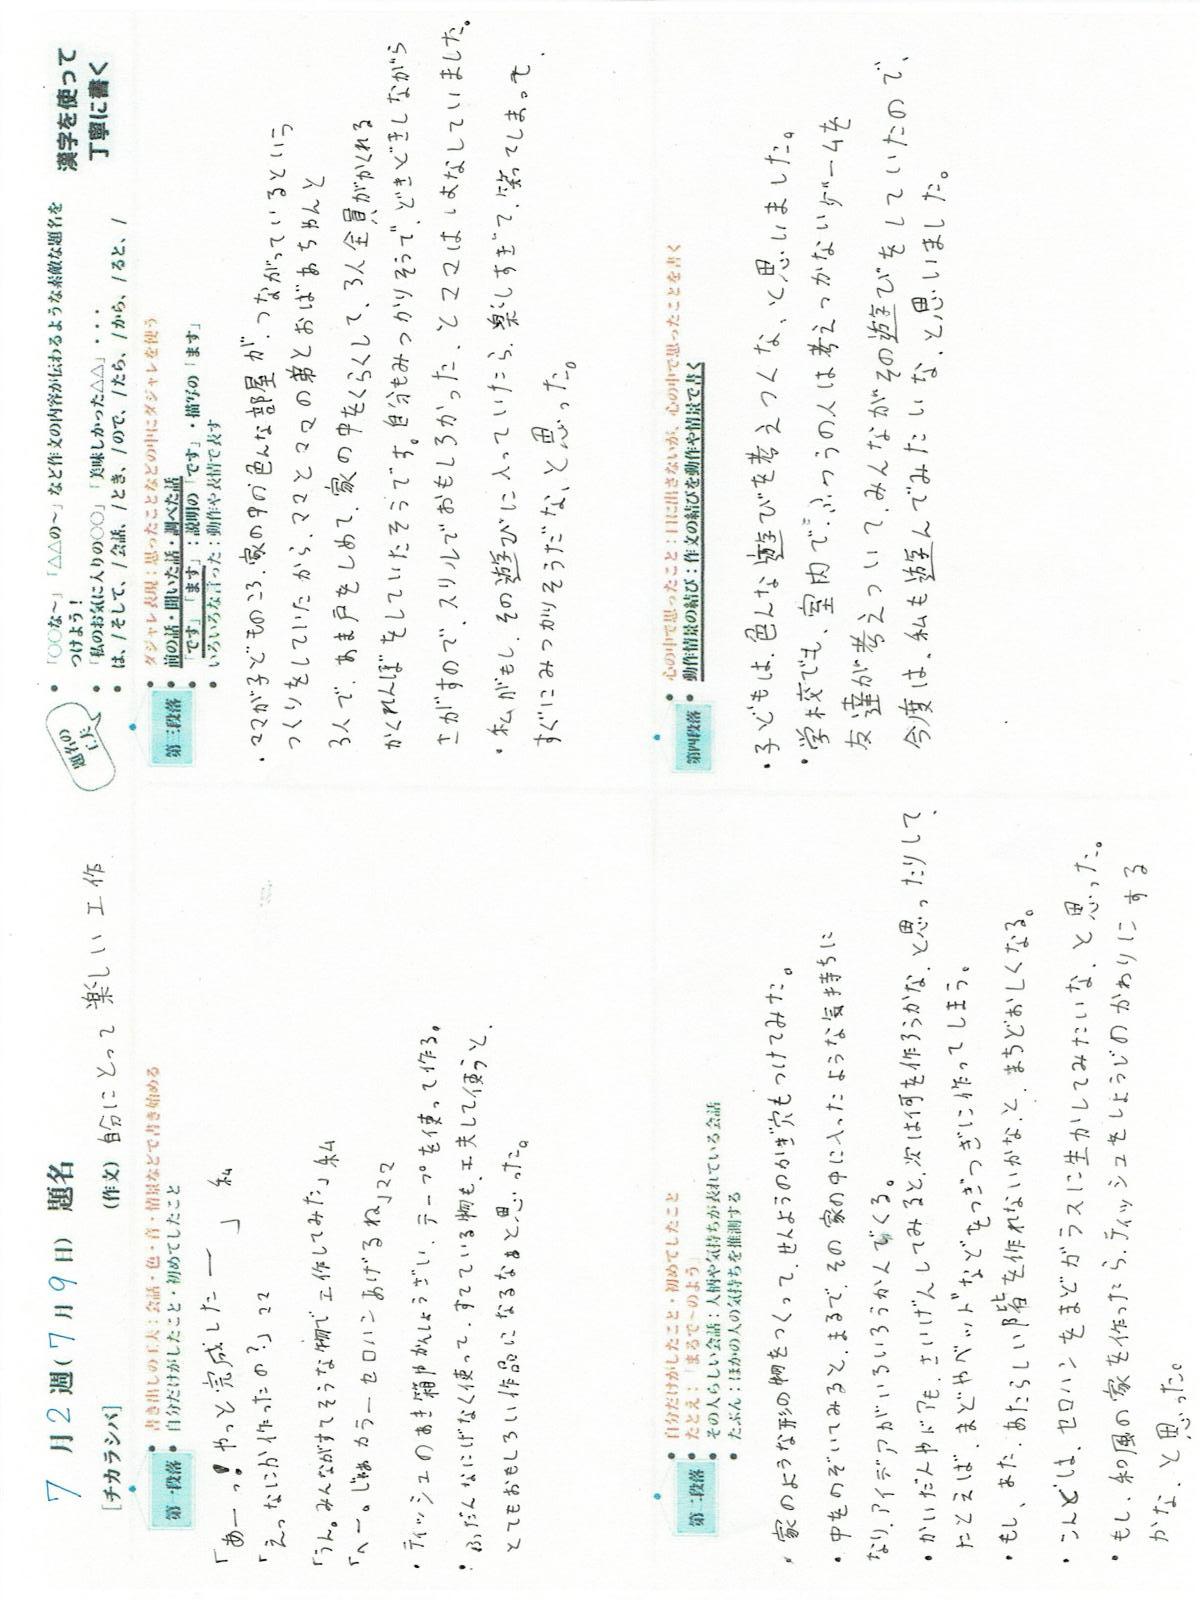 7月2週(7月9日) 題名
[チカラシバ]
(作文) 自分にとって楽しい工作
題名の工夫
「○○な〜」「△△の〜」など作文の内容が伝わるような素敵な題名を
つけよう!
「私のお気に入りの○○」「美味しかった△△」・・・
は、/そして、/会話、/とき、/ので、/たら、/から、/ると、/
漢字を使って
丁寧に書く
第一段落
書き出しの工夫:会話・色・音・情景などで書き始める
自分だけがしたこと・初めてしたこと
「あーっ!やっと完成したー」 私
「えっなにか作ったの?」ママ
「うん。みんながすてそうな物で工作してみた」私
「へー。じゃあカラーセロハンあげるね」ママ
・ティッシュのあき箱やかんしょうざい、テープを使って作る。
・ふだんなにげなく使って、すてている物も、工夫して使うと、
とてもおもしろい作品になるなあと思った。
第二段落
自分だけがしたこと・初めてしたこと
たとえ:「まるで〜のよう」
その人らしい会話:人柄や気持ちが表れている会話
たぶん:ほかの人の気持ちを推測する
・家のような形の物をつくって、せんようのかぎ穴もつけてみた。
・中をのぞいてみると、まるで、その家の中に入ったような気持ちに
なり、アイデアがいろいろうかんでくる。
・かいだんやドアも、さいげんしてみると、次は何を作ろうかな、と思ったりして、
たとえば、まどやベッドなどをつぎつぎに作ってしまう。
・もし、また、あたらしい階を作れないかな、と、まちどおしくなる。
・こんどは、セロハンをまどガラスに生かしてみたいな、と思った。
・もし、和風の家を作ったら、ティッシュをしょうじのかわりにする
かな、と思った。
第三段落
ダジャレ表現:思ったことなどの中にダジャレを使う
前の話・聞いた話・調べた話
「です」「ます」:説明の「です」・描写の「ます」
いろいろな言った:動作や表情で表す
・ママが子どものころ、家の中の色んな部屋が、つながっているという
つくりをしていたから、ママとママの弟とおばあちゃんと
3人で、あま戸をしめて、家の中をくらくして、3人全員がかくれる
かくれんぼをしていたそうです。自分もみつかりそうで、どきどきしながら
さがすので、スリルでおもしろかった、とママははなしていました。
・私がもし、その遊びに入っていたら、楽しすぎて、笑ってしまって、
すぐにみつかりそうだな、と思った。
第四段落
心の中で思ったこと:口に出さないが、心の中で思ったことを書く
動作情景の結び:作文の結びを動作や情景で書く
・子どもは、色んな遊びを考えつくな、と思いました。
・学校でも、室内で、ふつうの人は考えつかないゲームを
友達が考えついて、みんながその遊びをしていたので、
今度は、私も遊んでみたいな、と思いました。